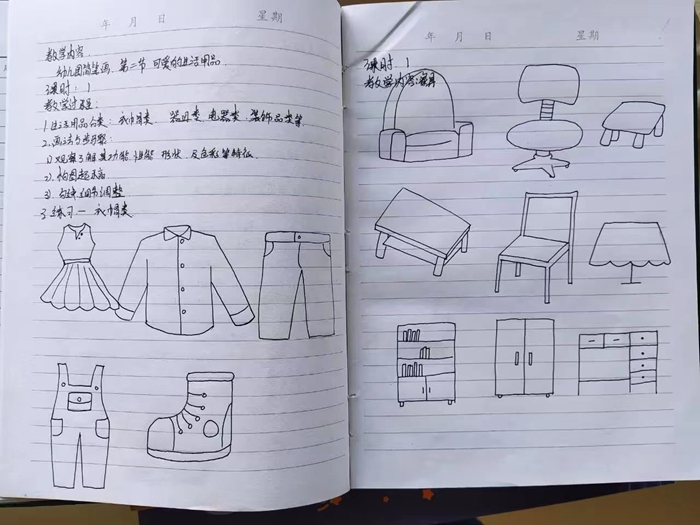 年 月 日 星期
教学内容
幼儿园简笔画 第二节 可爱的生活用品
课时：1
教学过程：
1.生活用品分类：衣巾帽类 器皿类 电器类 装饰品类等
2.画法与步骤：
1).观察了解其功能 性能 形状 及色彩等特征
2).构图起未稿
3).勾线细节调整
3.练习一 衣巾帽类
年 月 日 星期
课时：1
教学内容：家具